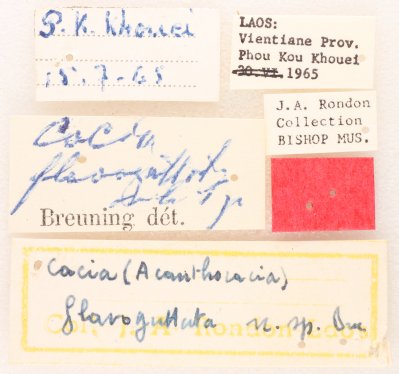 P. K. Khouei
15.7-65
LAOS:
Vientiane Prov.
Phou Kou Khouei
30.VI.1965
J.A. Rondon
Collection
BISHOP MUS.
Cacia
flavoguttata
Breuning dét.
Cacia (Acanthocacia)
flavoguttata n. sp. Br
Coll. J. A. Rondon Laos